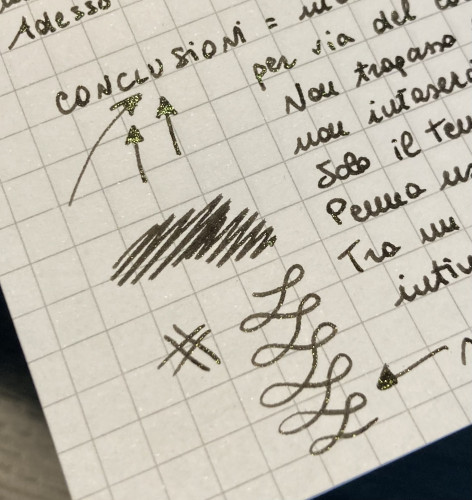 Adesso
CONCLUSIONI =
per via del
Non trapassa
non intaser
Solo il te
Penna
Tra un
intiv